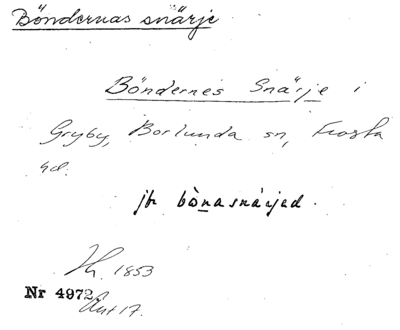 Böndernas snärje
Böndernes Snärje i
Gryby, Borlunda sn, Frosta
hd.
jfr bònasnárjed.
1853
Nr 4972
Ant 17.